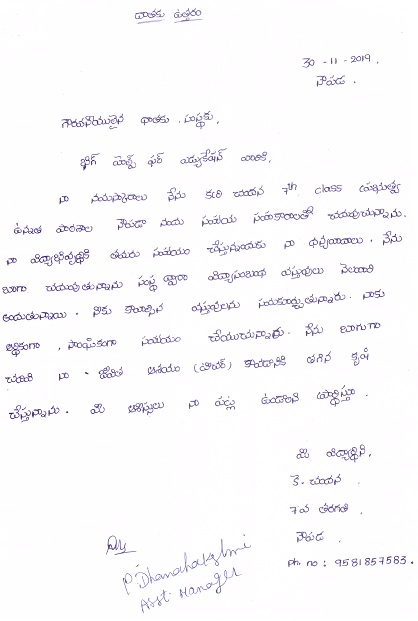 దాతకు ఉత్తరం
30-11-2019.
నౌపడ.
గౌరవనీయులైన దాతకు. సంస్థకు,
ఫర్ ఎడ్యుకేషన్ వారికి,
నా నమస్కారాలు నేను కె. చందన 7th class ప్రభుత్వ
ఉన్నత పాఠశాల నౌపడా సహాయ సహకారాలతో చదువుచున్నాను.
నా విద్యాభివృద్ధికి తమరు సహాయం చేస్తున్నందుకు నా ధన్యవాదాలు. నేను
బాగా చదువుతున్నాను సంస్థ ద్వారా విద్యాసంబంధ వస్తువులు
అందుతున్నాయి. నాకు కావాల్సిన వస్తువులను సమకూర్చుతున్నారు. నాకు
ఆర్థికంగా, సాంఘికంగా సహాయం చేయుచున్నారు. నేను బాగుగా
చదివి నా జీవిత ఆశయం (టీచర్) కావడానికి తగిన కృషి
చేస్తున్నాను. మీ ఆశీస్సులు నా పట్ల ఉండాలని ప్రార్థిస్తూ.
మీ విద్యార్థిని,
కె. చందన.
7వ తరగతి.
నౌపడ.
Ph. no: 9581857583.
P. Dhanalakshmi
Asst. Manager